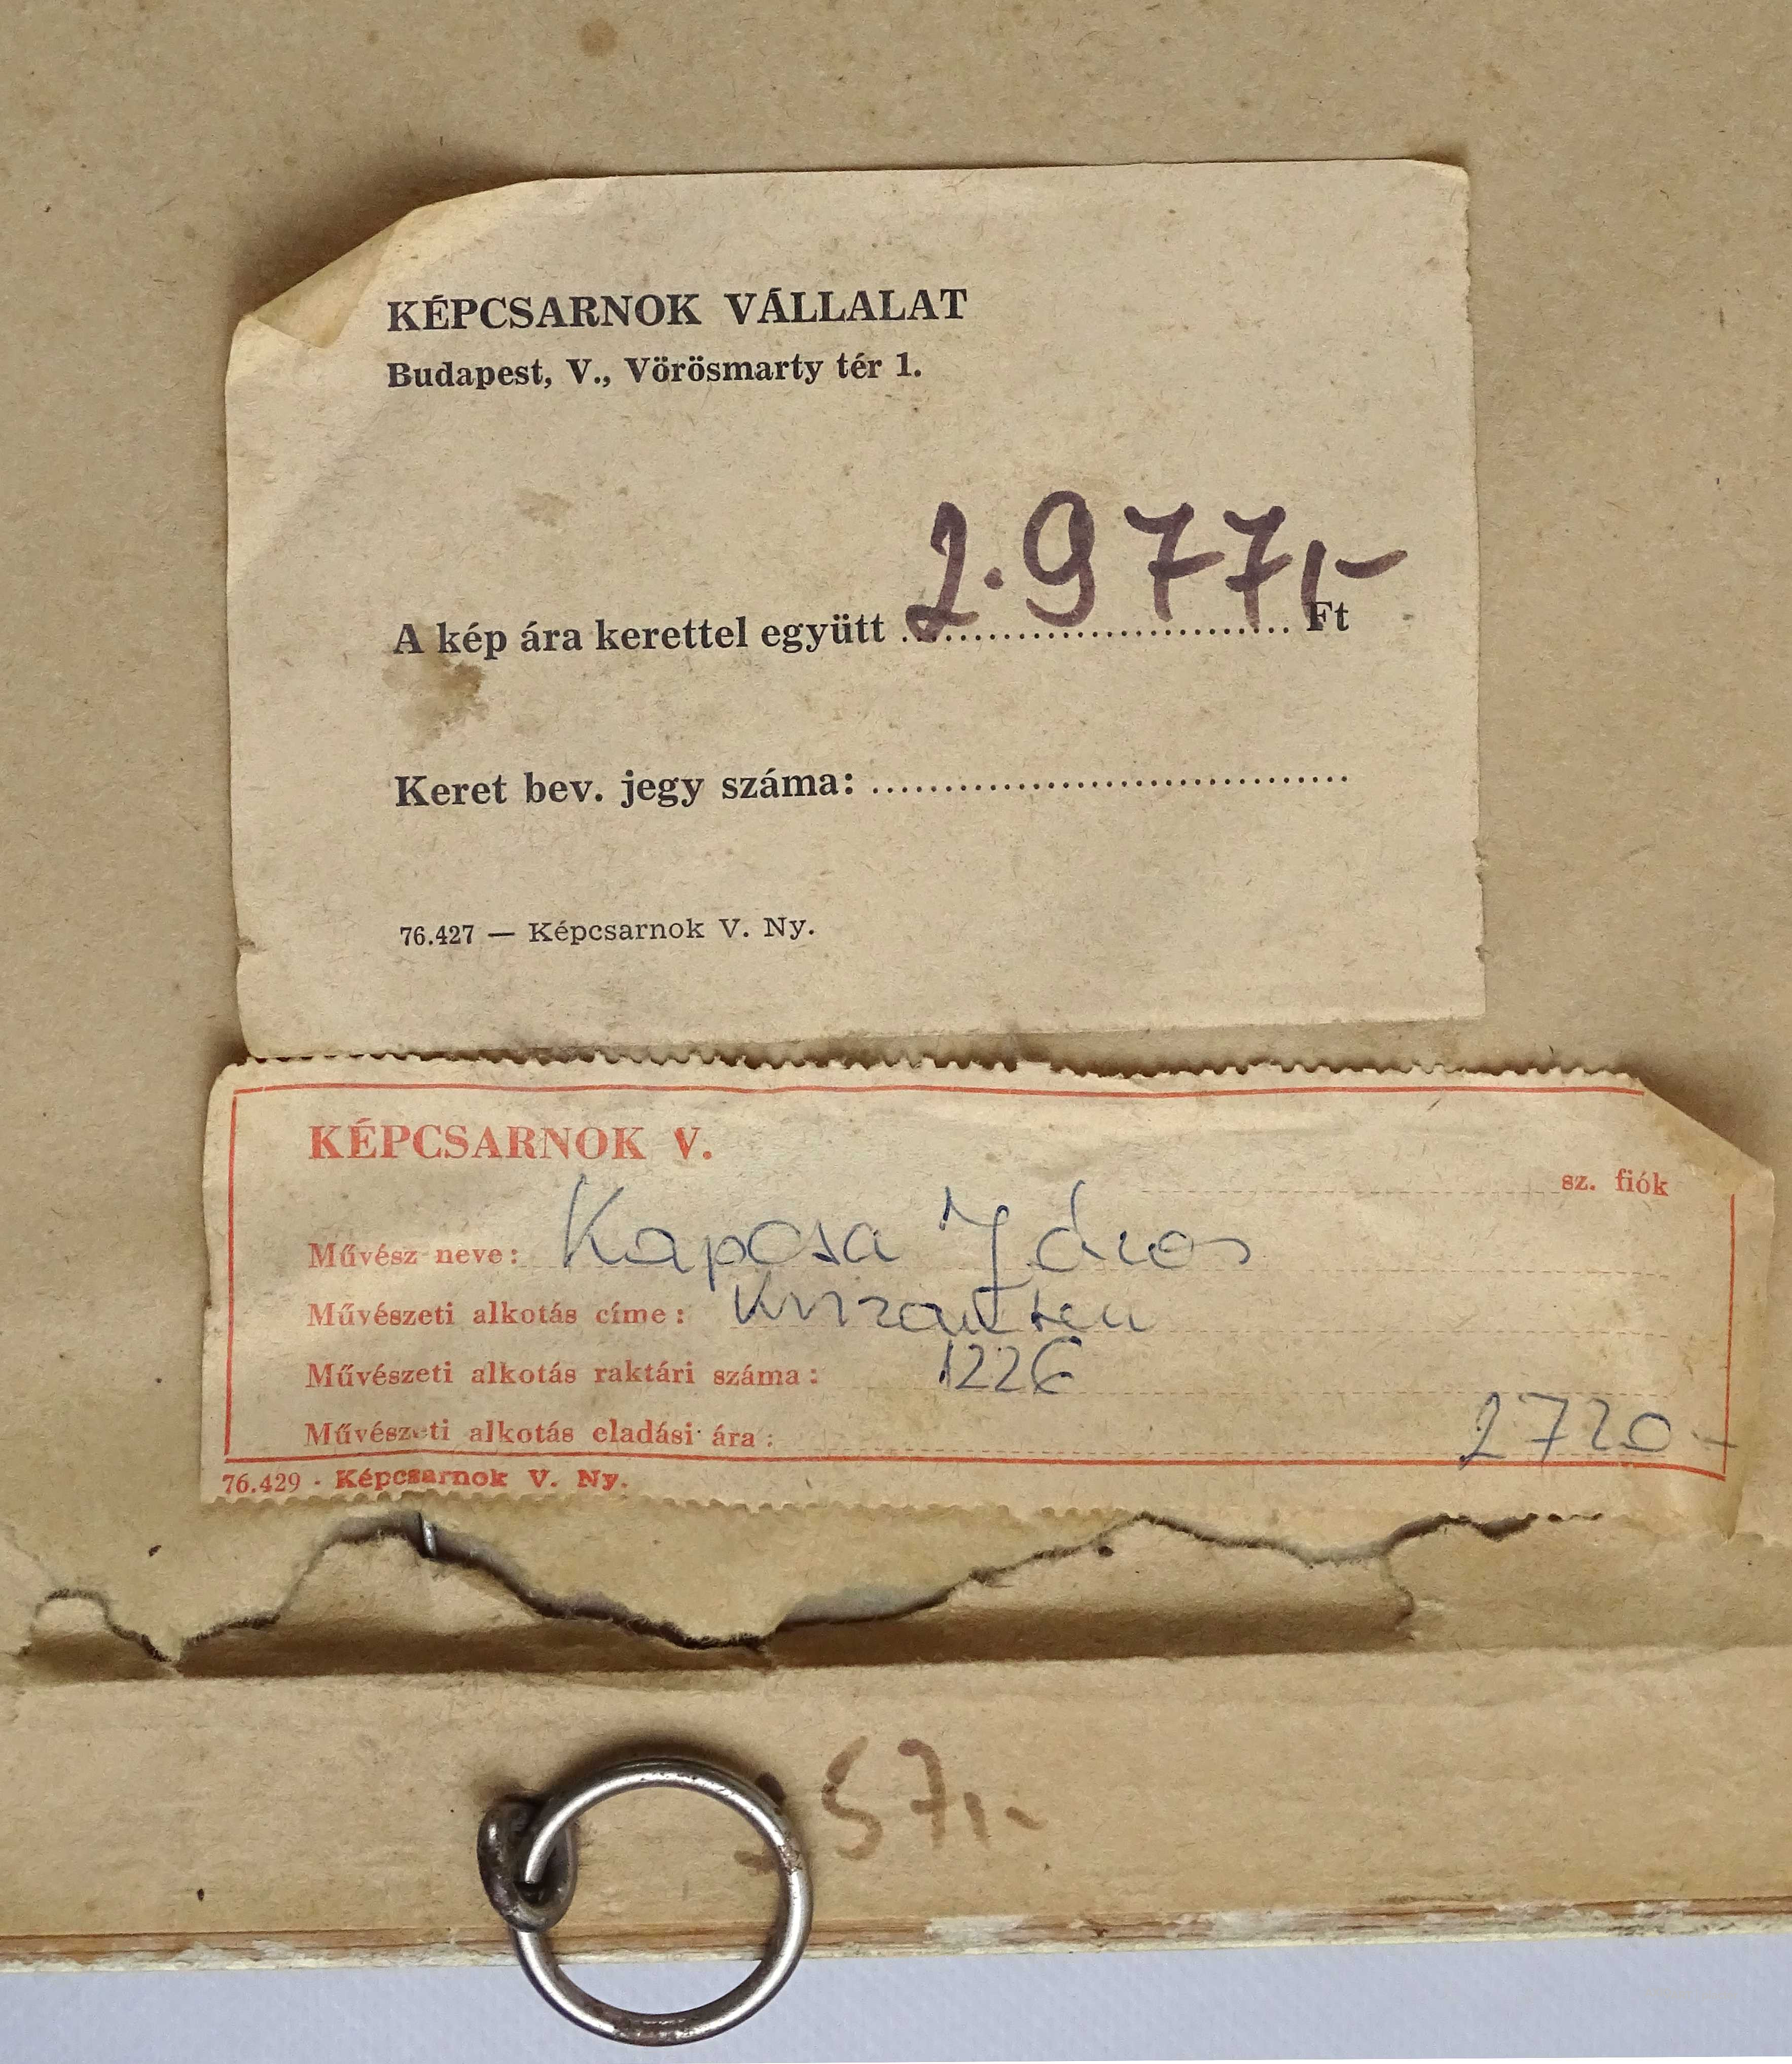 KÉPCSARNOK VÁLLALAT
Budapest, V., Vörösmarty tér 1.
A kép ára kerettel együtt 2.977,- Ft
Keret bev. jegy száma:
76.427 — Képcsarnok V. Ny.
KÉPCSARNOK V.
sz. fiók
Művész neve: Kapcsa János
Művészeti alkotás címe:
Művészeti alkotás raktári száma: 1226
Művészeti alkotás eladási ára: 2720-
76.429 - Képcsarnok V. Ny.
57,-